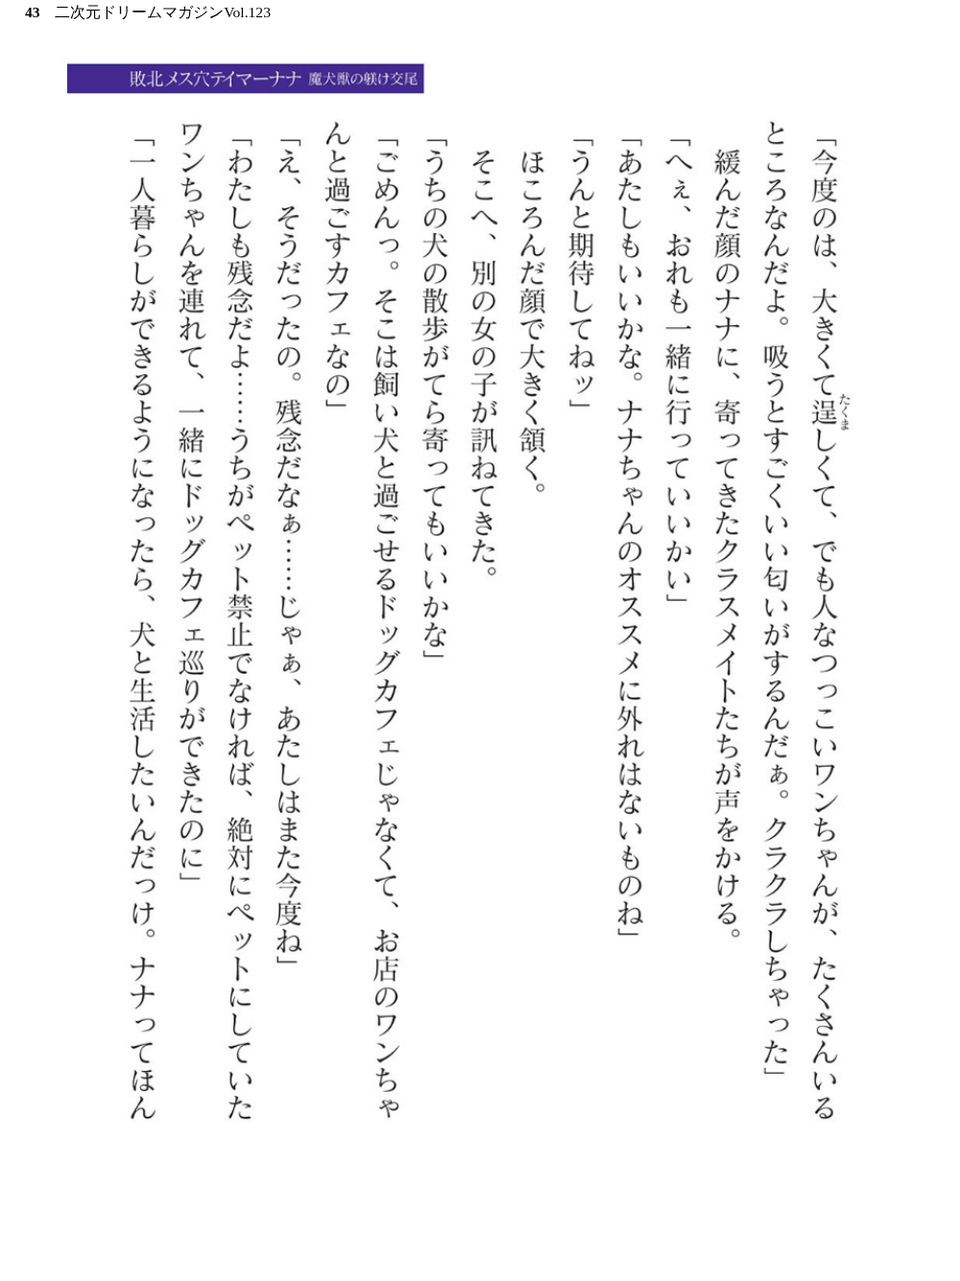 43 二次元ドリームマガジンVol.123
敗北メス穴テイマーナナ 魔犬獣の躾け交尾
「今度のは、大きくて逞しくて、でも人なつっこいワンちゃんが、たくさんいる
たくま
ところなんだよ。吸うとすごくいい匂いがするんだぁ。クラクラしちゃった」
緩んだ顔のナナに、寄ってきたクラスメイトたちが声をかける。
「へぇ、おれも一緒に行っていいかい」
「あたしもいいかな。ナナちゃんのオススメに外れはないものね」
「うんと期待してねッ」
ほころんだ顔で大きく頷く。
そこへ、別の女の子が訊ねてきた。
「うちの犬の散歩がてら寄ってもいいかな」
「ごめんっ。そこは飼い犬と過ごせるドッグカフェじゃなくて、お店のワンちゃ
んと過ごすカフェなの」
「え、そうだったの。残念だなぁ……じゃぁ、あたしはまた今度ね」
「わたしも残念だよ……うちがペット禁止でなければ、絶対にペットにしていた
ワンちゃんを連れて、一緒にドッグカフェ巡りができたのに」
「一人暮らしができるようになったら、犬と生活したいんだっけ。ナナってほん